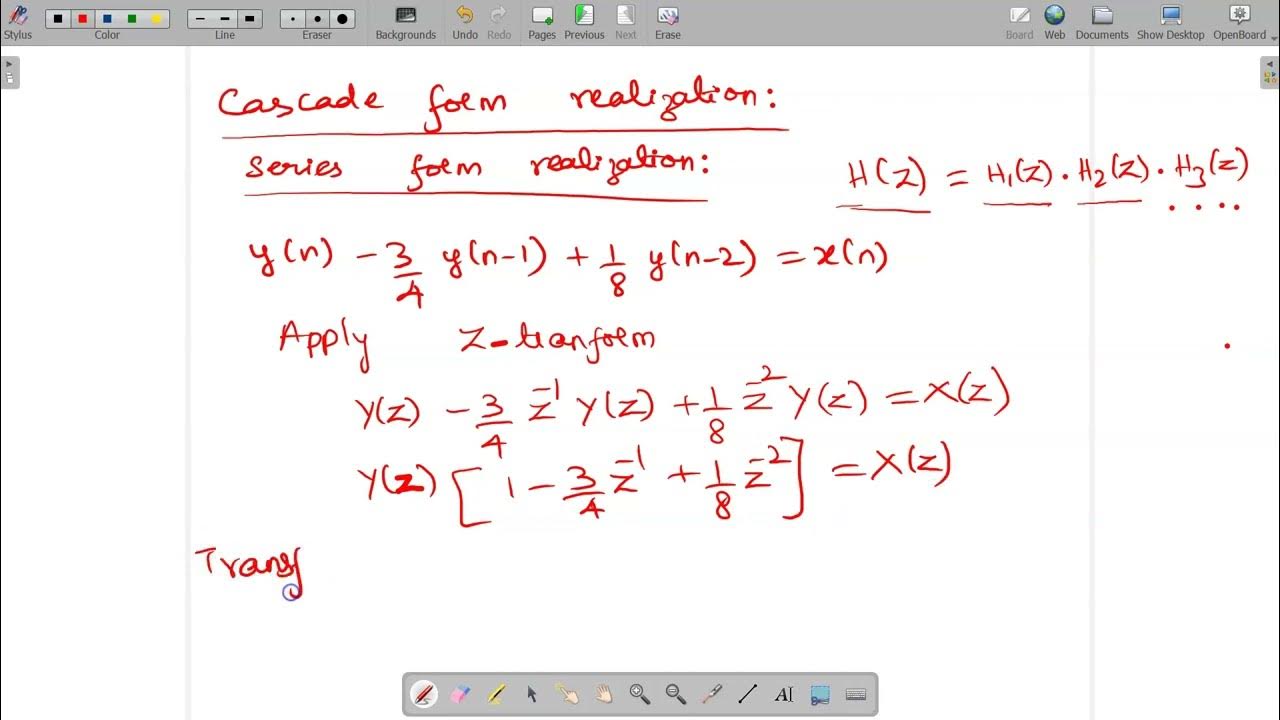 Stylus Color Line Eraser Backgrounds Undo Redo Pages Previous Next Erase Board Web Documents Show Desktop OpenBoard
Cascade form realization:
series form realization:
H(z) = H₁(z) · H₂(z) · H₃(z) ....
y(n) - 3/4 y(n-1) + 1/8 y(n-2) = x(n)
Apply Z-tranform
Y(z) - 3/4 z⁻¹ Y(z) + 1/8 z⁻² Y(z) = X(z)
Y(z) [1 - 3/4 z⁻¹ + 1/8 z⁻²] = X(z)
Transf
AI